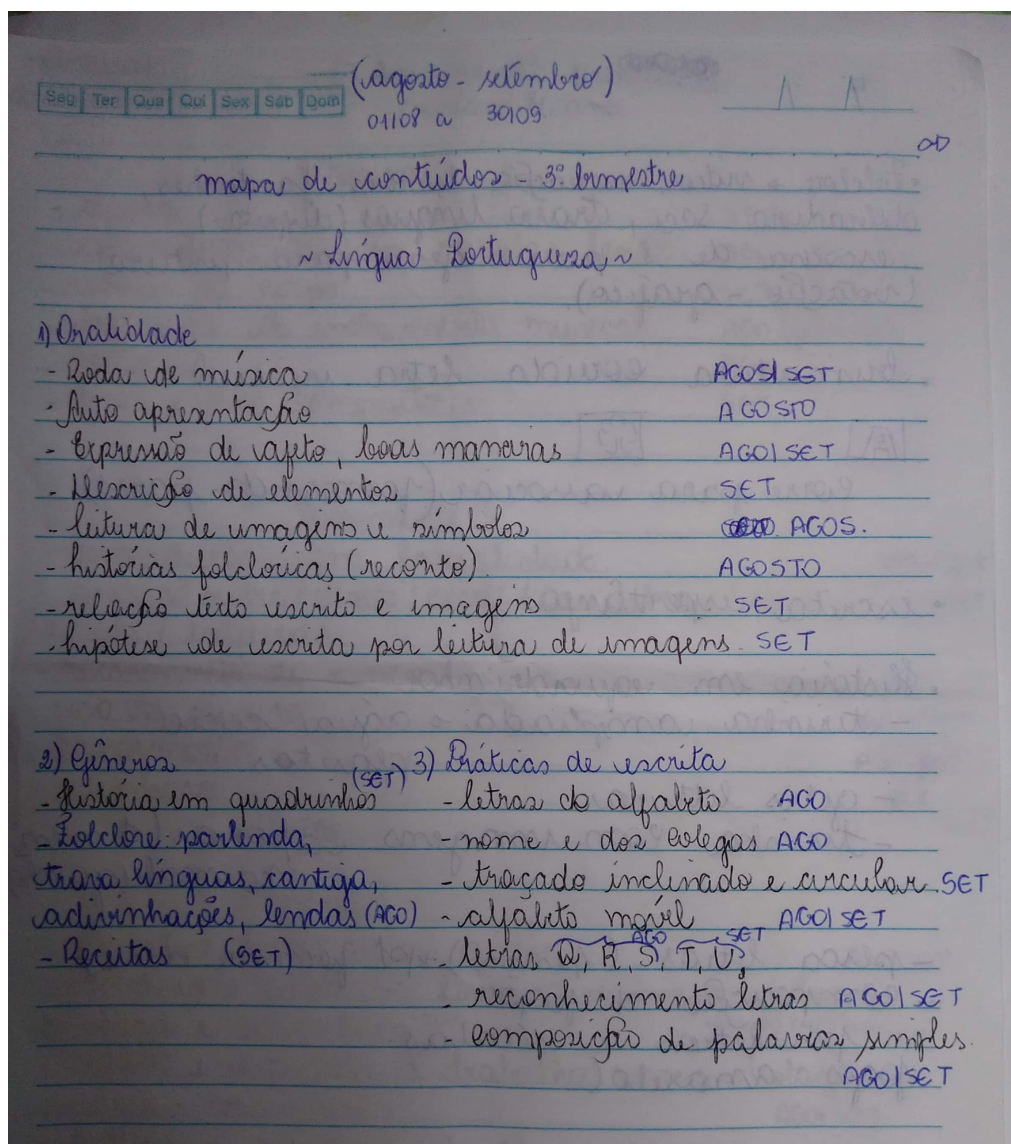 (agosto - setembro)
Seg Ter Qua Qui Sex Sáb Dom
01/08 a 30/09
mapa de conteúdos - 3º bimestre
~ Língua Portuguesa ~
1) Oralidade
- Roda de música AGOS/SET
- Auto apresentação AGOSTO
- Expressão de afeto, boas maneiras AGO/SET
- Descrição de elementos SET
- leitura de imagens e símbolos AGOS.
- histórias folclóricas (reconto) AGOSTO
- relação texto escrito e imagens SET
- hipótese de escrita por leitura de imagens. SET
2) Gêneros
- História em quadrinhos (SET)
- Folclore: parlenda,
trava línguas, cantiga,
adivinhações, lendas (AGO)
- Receitas (SET)
3) Práticas de escrita
- letras do alfabeto AGO
- nome e dos colegas AGO
- traçado inclinado e circular. SET
- alfabeto móvel AGO/SET
AGO SET
- letras Q, R, S, T, U,
- reconhecimento letras AGO/SET
- composição de palavras simples.
AGO/SET